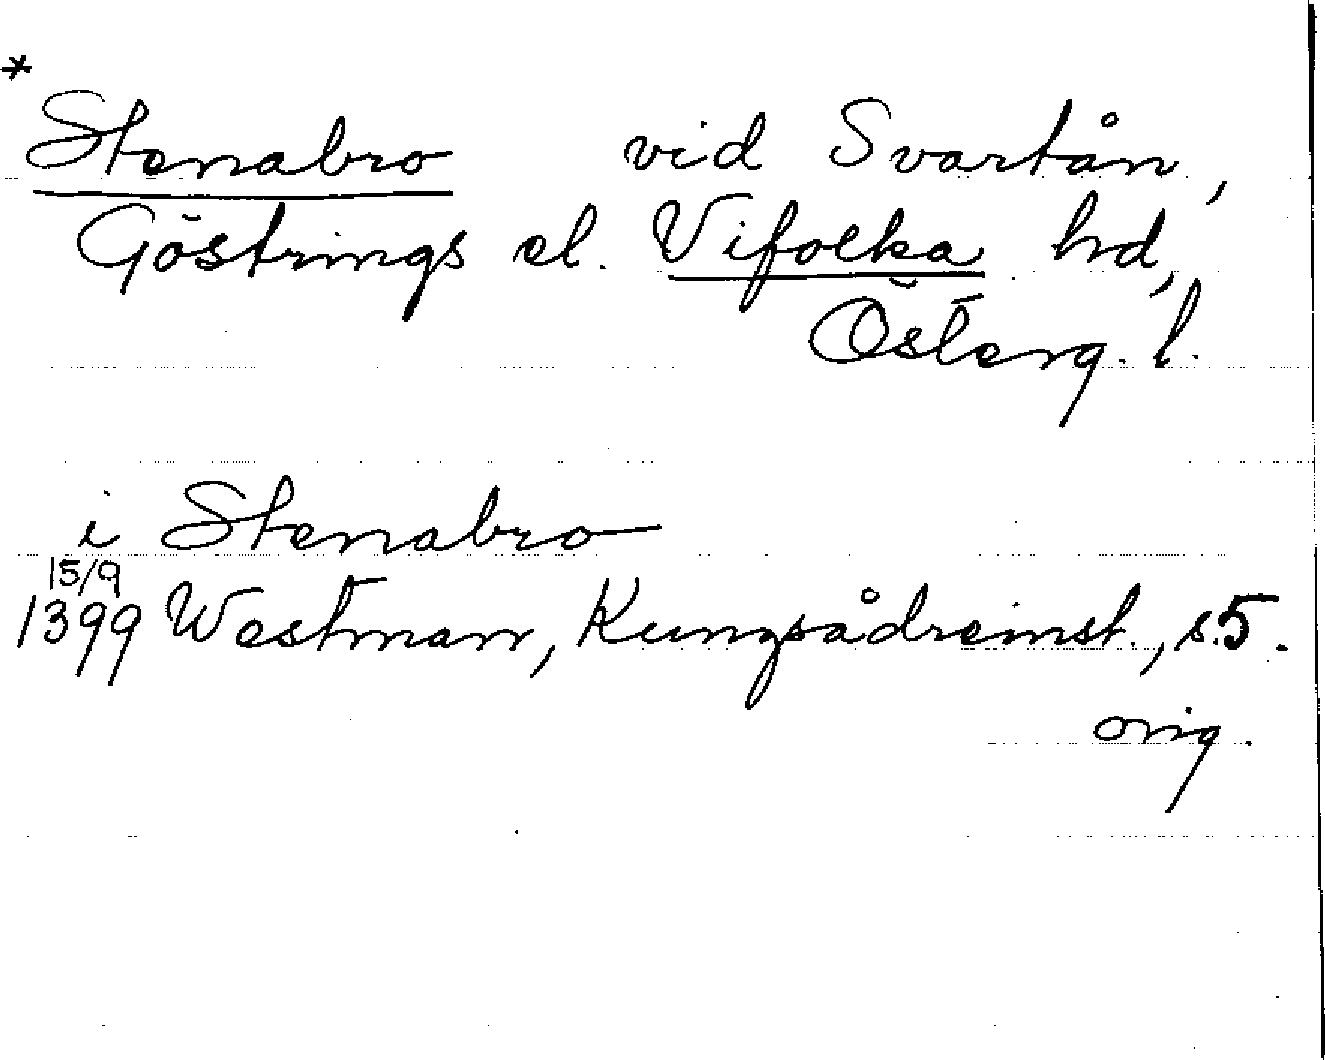 *
Stenabro vid Svartån,
Göstrings el. Vifolka hd,
Österg. l.
i Stenabro
15/9
1399 Westman, Kungsådreinst., s. 5.
orig.